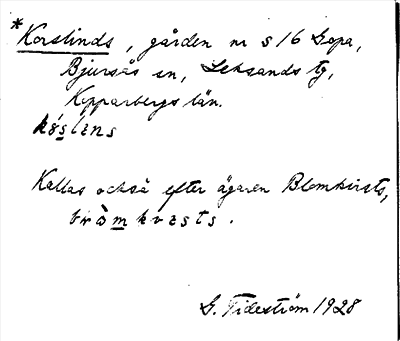 *Korslinds, gården nr s 16 Sopa,
Bjursås sn, Leksands tg,
Kopparbergs län.
kóslɪns
Kallas också efter ägaren Blomkvists,
kvɛsts.
G. Tideström 1928